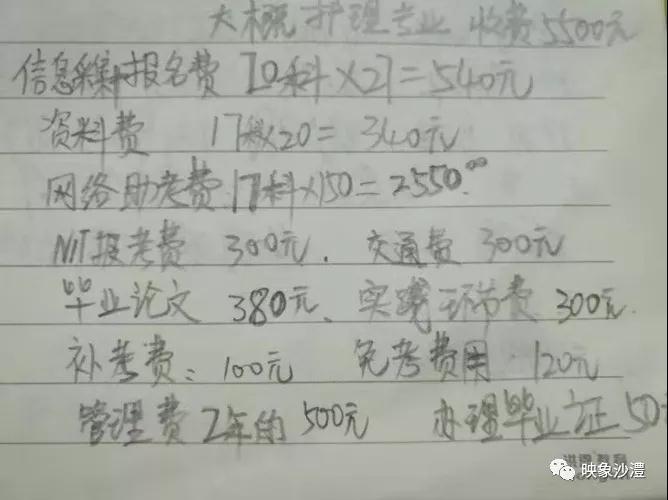 大概护理专业 收费5500元
信息采集报名费 20科×27=540元
资料费 17科×20=340元
网络助考费 17科×150=2550.00
NIT报考费 300元. 交通费 300元
毕业论文 380元、实践环节费 300元.
补考费: 100元 免考费用 120元
管理费 2年的 500元 办理毕业证 50
映象沙澧